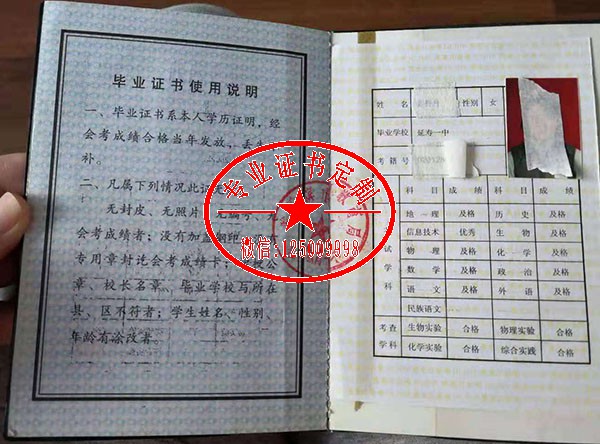 毕业证书使用说明
一、毕业证书系本人学历证明，经
会考成绩合格当年发放，丢失不
补。
二、凡属下列情况此证无
无封皮、无照片、无编号、无
会考成绩者；没有加盖钢印
专用章封讫会考成绩卡；
章、校长名章、毕业学校与所在
县、区不符者；学生姓名、性别、
年龄有涂改者。
专业证书定制
微信:125009998
姓 名 性别 女
毕业学校 延寿一中
考籍号
科 目 成 绩 科 目 成 绩
地 理 及格 历 史 及格
信息技术 优秀 生 物 及格
物 理 及格 化 学 及格
数 学 及格 政 治 及格
语 文 及格 外 语 及格
民族语文
试
学
科
考查 生物实验 合格 物理实验 合格
学科 化学实验 合格 综合实践 合格